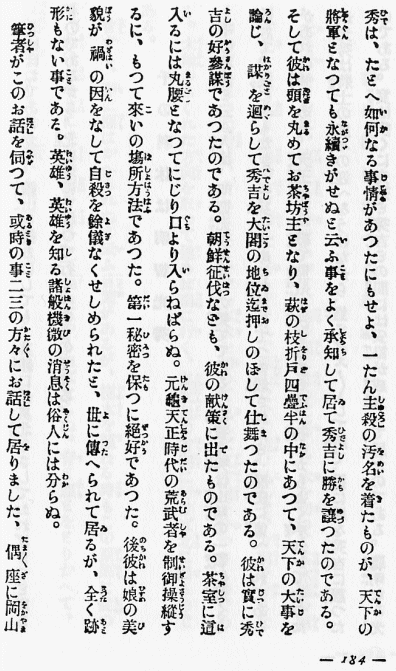 秀は、たとへ如何なる事情があつたにもせよ、一たん主殺の汚名を着たものが、天下の
將軍となつても永續きがせぬと云ふ事をよく承知して居て秀吉に勝を讓つたのである。
そして彼は頭を丸めてお茶坊主となり、萩の枝折戸四疊半の中にあつて、天下の大事を
論じ、謀を廻らして秀吉を大閤の地位迄押しのぼして仕舞つたのである。彼は實に秀
吉の好參謀であつたのである。朝鮮征伐なども、彼の献策に出たものである。茶室に這
入るには丸腰となつてにじり口より入らねばらぬ。元龜天正時代の荒武者を制御操縱す
るに、もつて來いの塲所方法であつた。第一秘密を保つに絕好であつた。後彼は娘の美
貌が禍の因をなして自殺を餘儀なくせしめられたと、世に傳へられて居るが、全く跡
形もない事である。英雄、英雄を知る諸般機微の消息は俗人には分らぬ。
筆者がこのお話を伺つて、或時の事二三の方々にお話して居りました、偶座に岡山
— 184 —